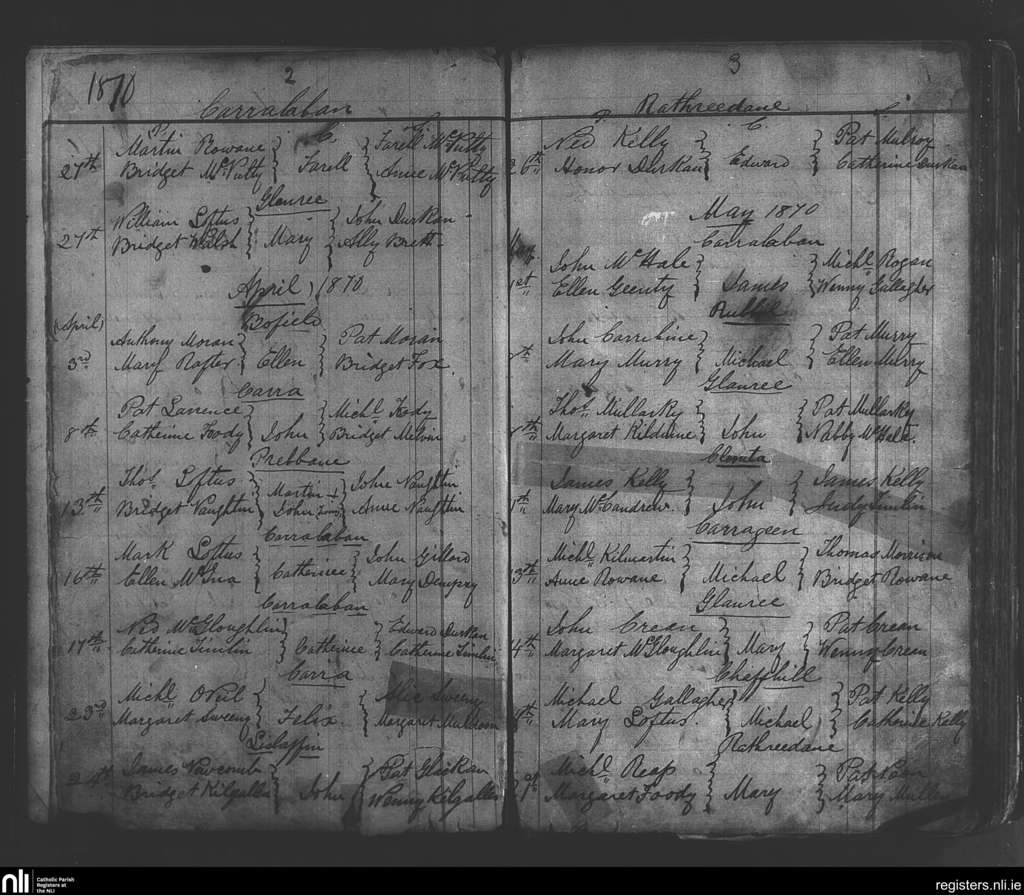 1870
2
Carralaban
P. C. G.
Martin Rowane } } Farell McNutty
27th Bridget McNutty } Farell } Anne McNutty
Glauree
William Loftus } } John Durkan
27th Bridget Walsh } Mary } Ally Brett
April, 1870
(April) Bofield
Anthony Moran } } Pat Moran
3rd Mary Rafter } Ellen } Bridget Fox.
Carra
Pat Larrence } } Michl. Foody
8th Catherine Foody } John } Bridget Melvin
Prebbane
Thos. Loftus } Martin + } John Naughtin
13th Bridget Naughtin } John } Anne Naughtin
Carralaban
Mark Loftus } } John Gillard
16th Ellen } Catherinee } Mary Dempsy
Carralaban
Ned McGloughlin } } Edward Durkan
17th Catherine Timlin } Catherinee } Catherine Timlin
Carra
Michl. ONeil } } Alice Sweeny
23rd Margaret Sweeny } Felix. } Margaret
Lislaffin
James Newcomb } } Pat
24th Bridget Kilgallen } John } Wenny Kilgallen
3
Rathreedane
P C. G
Ned Kelly } } Pat Mulroy
26th Honor Durkan } Edward } Catherine Durkan
May 1870
Carralaban
John McHale } } Michl. Rogan
1st Ellen Geerity } James } Wenny Gallagher
John } } Pat Murry
th Mary Murry } Michael } Ellen Murry
Glauree
Thos. Mullarky } } Pat Mullarky
th Margaret Kildunne } John } Nabby McHale.
James Kelly } } James Kelly
th Mary McCandrew. } John } Judy Timlin
Carrageen
Michl. Kilmartin } } Thomas Morrison
3th Anne Rowane } Michael } Bridget Rowane
Glauree
John Crean } } Pat Crean
4th Margaret McGloughlin } Mary } Wenny Crean
Cheffhill
Michael Gallagher } } Pat Kelly
th Mary Loftus. } Michael } Catherine Kelly
Rathreedane
Michl. Reap } } Pat
Margaret Foody } Mary } Mary
nli
Catholic Parish
Registers at
the NLI
registers.nli.ie